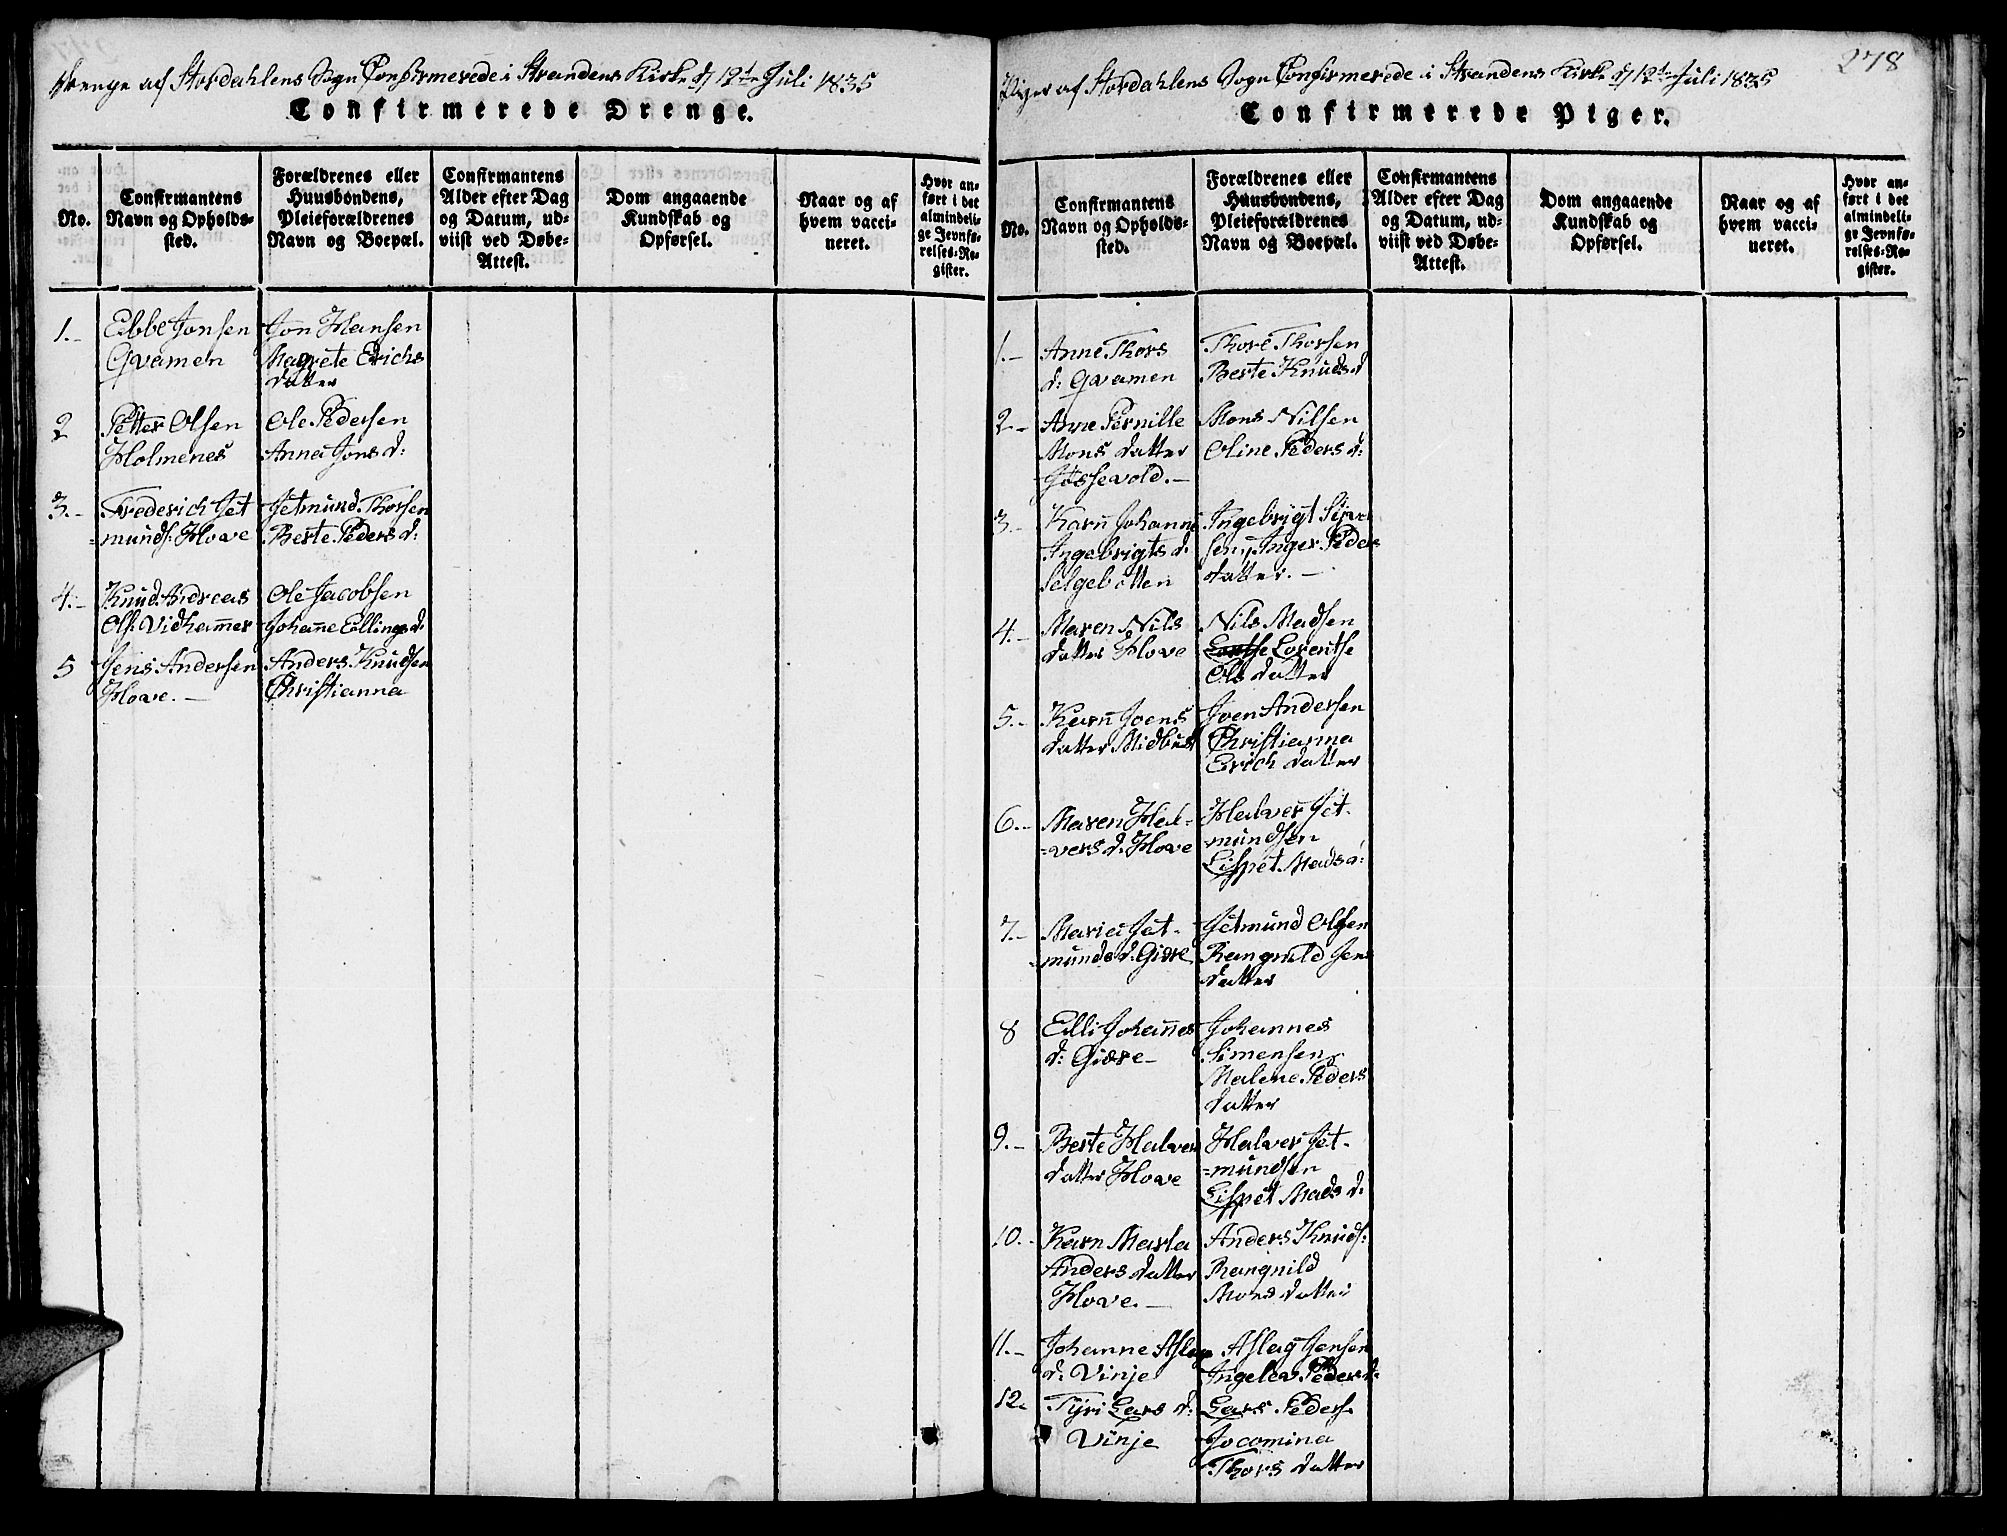 Drenge af Stordahlens Sogn Confirmerede i Strandens Kirke d 12te Juli 1835
Confirmerede Drenge.
No.
Confirmantens
Navn og Opholds-
sted.
Forældrenes eller
Huusbondens,
Pleieforældrenes
Navn og Boepæl.
Confirmantens
Alder efter Dag
og Datum, ud-
viist ved Døbe-
Attest.
Dom angaaende
Kundskab og
Opførsel.
Naar og af
hvem vacci-
neret.
Hvor an-
ført i det
almindeli-
ge Jevnfø-
relses-Re-
gister.
1.- Ebbe Jonsen
Qvamen
Jon Hansen
Magrete Erichs
datter
2 Petter Olsen
Holmenes
Ole Pedersen
Anna Jons d:
3.- Frederich Jet
=munds. Hove
Jetmund Thorsen
Berte Peders d:
4.- Knud Andreas
Ols. Vidhamer
Ole Jacobsen
Johane Ellings d:
5 Jens Andersen
Hove. -
Anders Knudsen
Christianna
278
Piger af Stordahlens Sogn Confirmerede i Strandens Kirke d 12te Juli 1835
Confirmerede Piger.
No.
Confirmantens
Navn og Opholds-
sted.
Forældrenes eller
Huusbondens,
Pleieforældrenes
Navn og Boepæl.
Confirmantens
Alder efter Dag
og Datum, ud-
viist ved Døbe-
Attest.
Dom angaaende
Kundskab og
Opførsel.
Naar og af
hvem vacci-
neret.
Hvor an-
ført i det
almindeli-
ge Jevnfø-
relses-Re-
gister.
1.- Anne Thors
d: Qvamen
Thore Thorsen
Berte Knudsd
2.- Ane Pernille
Mons datter
Jøssevold. -
Mons Nilsen
Oline Peders d:
3.- Karn Johanne
Ingebrigts d.
Selgebotten
Ingebrigt Siver
sen, Inger Peders
datter. -
4.- Maren Nils
datter Hove
Nils Madsen
Lorentse
Ols datter
5.- Karn Joens
datter Midbust
Joen Andersen
Christianna
Erich datter
6.- Maren Hal-
=vers d. Hove
Halver Jet-
=mundsen
Lispet Mads d:
7.- Maria Jet-
=munds d. Giære
Jetmund Olsen
Rangnild Jens
datter
8 Elli Johanes
d: Giære -
Johannes
Simensen
Malene Peders
datter
9.- Berte Halvers
datter Hove
Halver Jet-
=mundsen
Lispet Mads d.
10.- Karn Marta
Anders datter
Hove. -
Anders Knuds:
Rangnild
Mons datter
11.- Johanne Aslag
d. Vinje
Aslag Jensen
Ingelev Peders d:
12. Tyri Lars d:
Vinje
Lars Peders.
Jocomina
Thors datter